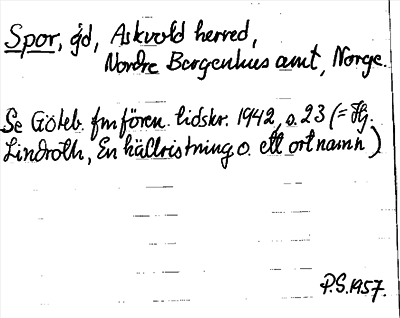 Spor, gd, Askvold herred,
Nordre Bergenhus amt, Norge.
Se Göteb. fm fören. tidskr. 1942, s. 23 (= Hj.
Lindroth, En hällristning o. ett ortnamn)
P.S. 1957.